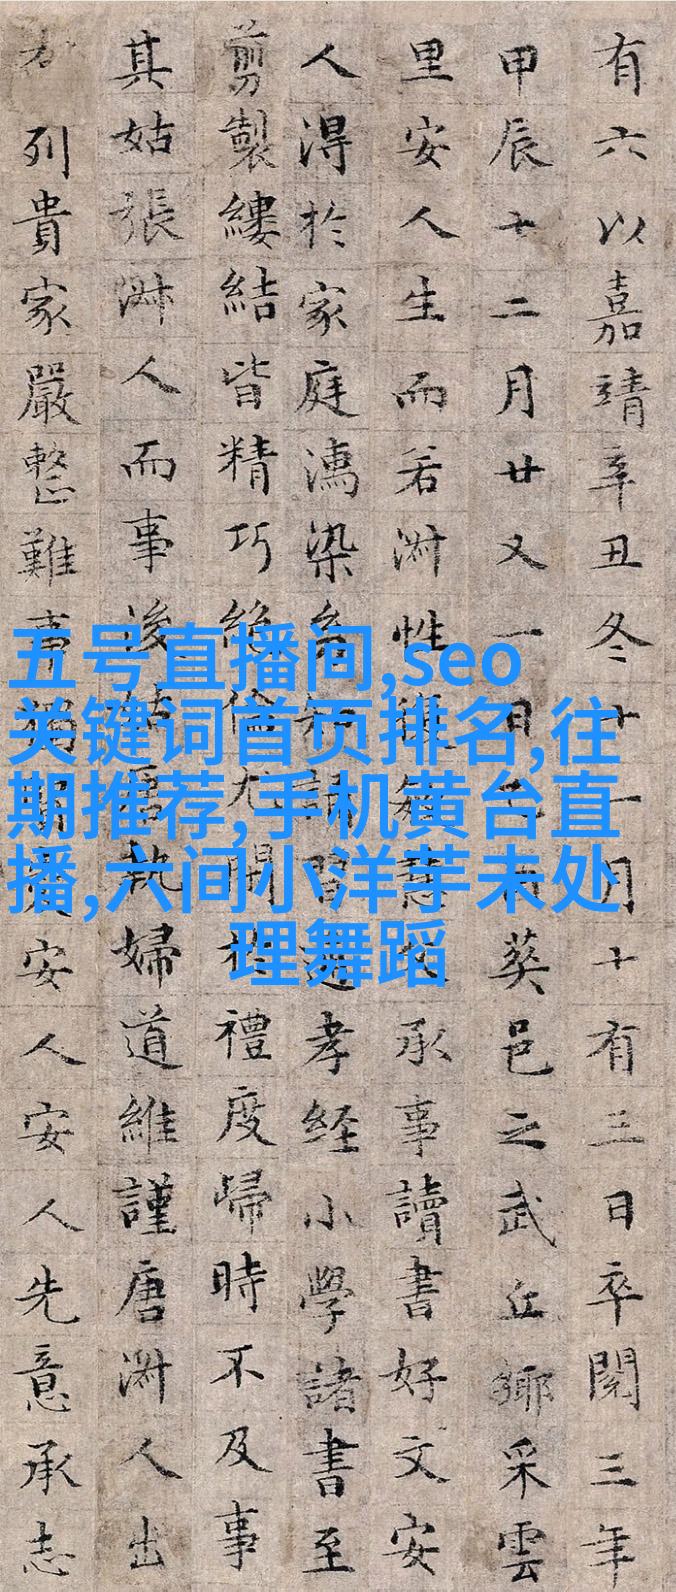 有六以嘉靖辛丑冬十一月十有三日卒閱三年
甲辰十二月廿又一日葬邑之武丘鄉采雲
里安人生而若淑性承事讀書好文安
人得於家庭濡染知訓習通孝経小學諸書至
剪製縷結皆精巧絶倫尤閑於禮度歸時不及事
其姑張淑人而事後姑執婦道維謹唐淑人出
列貴家嚴整難事獨安人安人先意承志
五号直播间,seo
关键词首页排名,往
期推荐,手机黄台直
播,六间小洋芋未处
理舞蹈